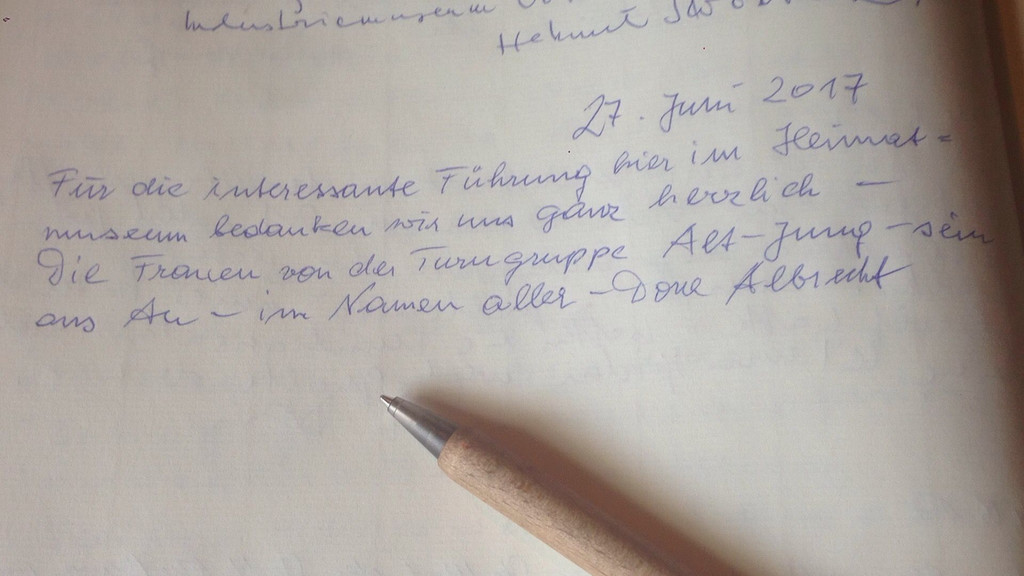 Industriemuseum
Helmut
27. Juni 2017
Für die interessante Führung hier im Heimat=
museum bedanken wir uns ganz herzlich –
Die Frauen von der Turngruppe Alt-Jung-sein
aus Au – im Namen aller – Dore Albrecht